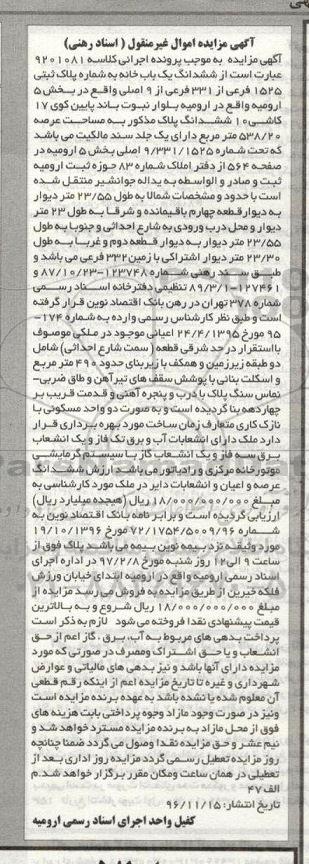 آگهی مزایده اموال غیرمنقول ( اسناد رهنی)
آگهی مزایده به موجب پرونده اجرائی کلاسه ۹۲۰۱۰۸۱
عبارت است از ششدانگ یک باب خانه به شماره پلاک ثبتی
۱۵۲۵ فرعی از ۳۳۱ فرعی از ۹ اصلی واقع در بخش ۵
ارومیه واقع در ارومیه بلوار نبوت باند پایین کوی ۱۷
کاشی۱۰ ششدانگ پلاک مذکور به مساحت عرصه
۵۳۸/۲۰ متر مربع دارای یک جلد سند مالکیت می باشد
که تحت شماره ۹/۳۳۱/۱۵۲۵ اصلی بخش ۵ ارومیه در
صفحه ۵۶۴ از دفتر املاک شماره ۸۳ حوزه ثبت ارومیه
ثبت و صادر و الواسطه به یداله جوانشیر منتقل شده
است با حدود و مشخصات شمالا به طول ۲۳/۵۵ متر دیوار
به دیوار قطعه چهارم باقیمانده و شرقا به طول ۲۳ متر
دیوار و محل درب ورودی به شارع احداثی و جنوبا به طول
۲۳/۵۵ متر دیوار به دیوار قطعه دوم و غربا به طول
۲۳/۳۰ متر دیوار اشتراکی با زمین ۳۳۲ فرعی می باشد و
طبق سند رهنی شماره ۱۲۳۷۴۸-۸۷/۱۰/۲۳ و
۱۲۷۴۶۱-۸۹/۳/۱ تنظیمی دفترخانه اسناد رسمی
شماره ۳۷۸ تهران در رهن بانک اقتصاد نوین قرار گرفته
است و طبق نظر کارشناس رسمی وارده به شماره ۱۷۴-
۹۵ مورخ ۲۴/۴/۱۳۹۵ اعیانی موجود در ملکی موصوف
با استقرار در حد شرقی قطعه ( سمت شارع احداثی) شامل
دو طبقه زیرزمین و همکف با زیربنای حدود ۴۹۰ متر مربع
و اسکلت بنائی با پوشش سقف های تیرآهن و طاق ضربی-
نماس سنگ پلاک با درب و پنجره آهنی و قدمت قریب بر
چهارده بنا گردیده است و به صورت دو واحد مسکونی با
نازک کاری متعارف زمان ساخت مورد بهره برداری قرار
دارد ملک دارای انشعابات آب و برق تک فاز و یک انشعاب
برق سه فاز و یک انشعاب گاز با سیستم گرمایشی
موتورخانه مرکزی و رادیاتور می باشد ارزش ششدانگ
عرصه و اعیان و انشعابات دایر در ملک مورد کارشناسی به
مبلغ ۱۸/۰۰۰/۰۰۰/۰۰۰ ریال (هیجده میلیارد ریال)
ارزیابی گردیده است و برابر نامه بانک اقتصاد نوین به
شماره ۷۲/۱۷۵۴/۵۰۰۹/۹۶ مورخ ۱۹/۱۰/۱۳۹۶
مورد وثیقه نزد بیمه نوین بیمه می باشد پلاک فوق از
ساعت ۹ الی ۱۲ روز شنبه مورخ ۹۷/۲/۸ در اداره اجرای
اسناد رسمی ارومیه واقع در ارومیه ابتدای خیابان ورزش
فلکه خیرین از طریق مزایده به فروش می رسد مزایده از
مبلغ ۱۸/۰۰۰/۰۰۰/۰۰۰ ریال شروع و به بالاترین
قیمت پیشنهادی نقدا فروخته می شود لازم به ذکر است
پرداخت بدهی های مربوط به آب، برق ، گاز اعم از حق
انشعاب و یا حق اشتراک و مصرف در صورتی که مورد
مزایده دارای آنها باشد و نیز بدهی های مالیاتی و عوارض
شهرداری و غیره تا تاریخ مزایده اعم از اینکه رقم قطعی
آن معلوم شده یا نشده باشد به عهده برنده مزایده است
ونیز در صورت وجود مازاد وجوه پرداختی بابت هزینه های
فوق از محل مازاد به برنده مزایده مسترد خواهد شد و
نیم عشر و حق مزایده نقدا وصول می گردد ضمنا چنانچه
روز مزایده تعطیل رسمی گردد مزایده روز اداری بعد از
تعطیلی در همان ساعت ومکان مقرر برگزار خواهد شد.م
الف ۴۷
تاریخ انتشار: ۹۶/۱۱/۱۵
کفیل واحد اجرای اسناد رسمی ارومیه